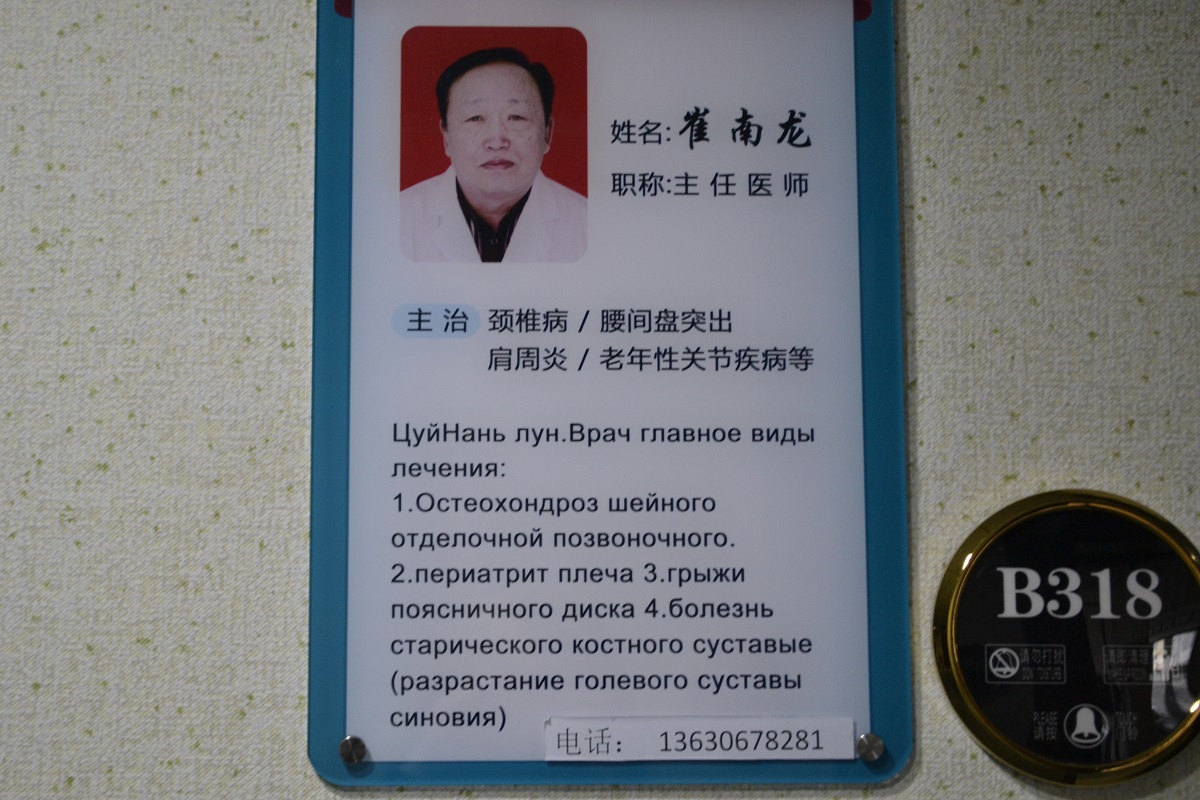 姓名:崔南龙
职称:主任医师
主治 颈椎病 / 腰间盘突出
肩周炎 / 老年性关节疾病等
ЦуйНань лун.Врач главное виды
лечения:
1.Остеохондроз шейного
отделочной позвоночного.
2.периатрит плеча 3.грыжи
поясничного диска 4.болезнь
старического костного суставые
(разрастание голевого суставы
синовия)
电话： 13630678281
B318
请勿打扰
PLEASE
请按